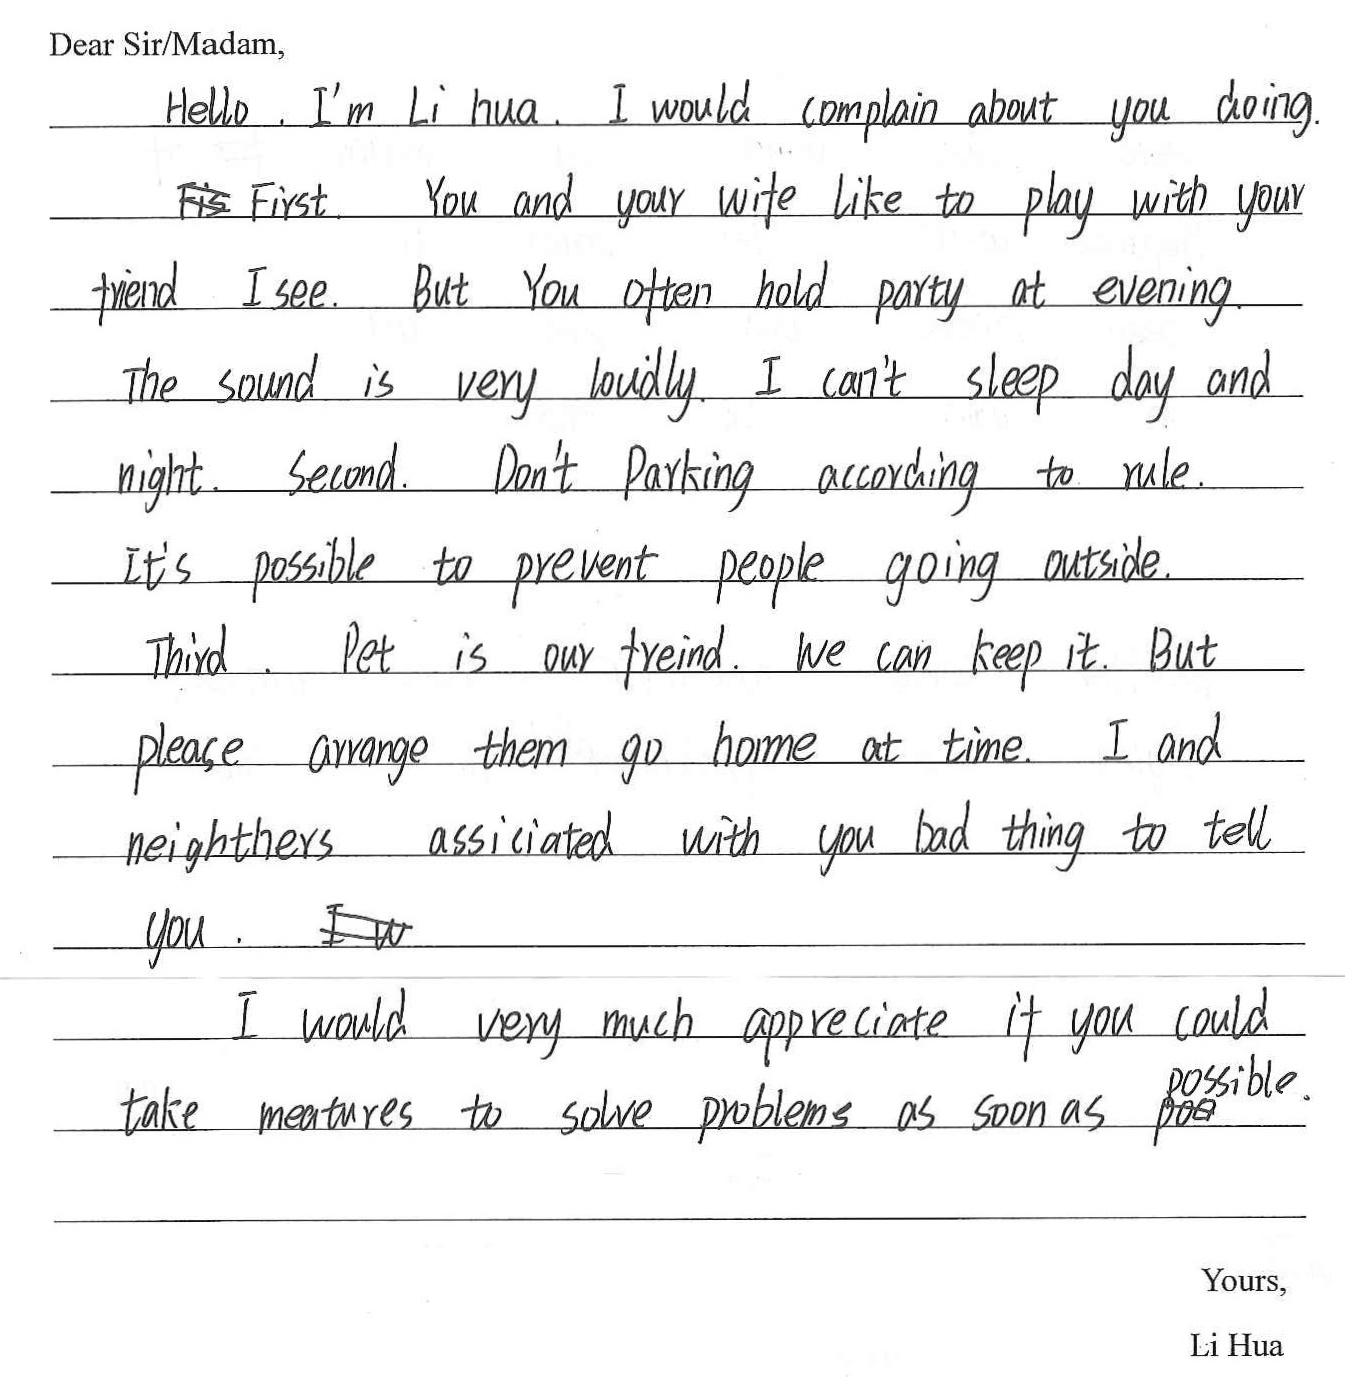 Dear Sir/Madam,
Hello. I'm Li hua. I would complain about you doing.
First. You and your wife like to play with your
friend I see. But You often hold party at evening.
The sound is very loudly. I can't sleep day and
night. Second. Don't Parking according to rule.
It's possible to prevent people going outside.
Third. Pet is our freind. We can keep it. But
please arrange them go home at time. I and
neighthers assiciated with you bad thing to tell
you.
I would very much appreciate if you could
take meatures to solve problems as soon as possible.
Yours,
Li Hua